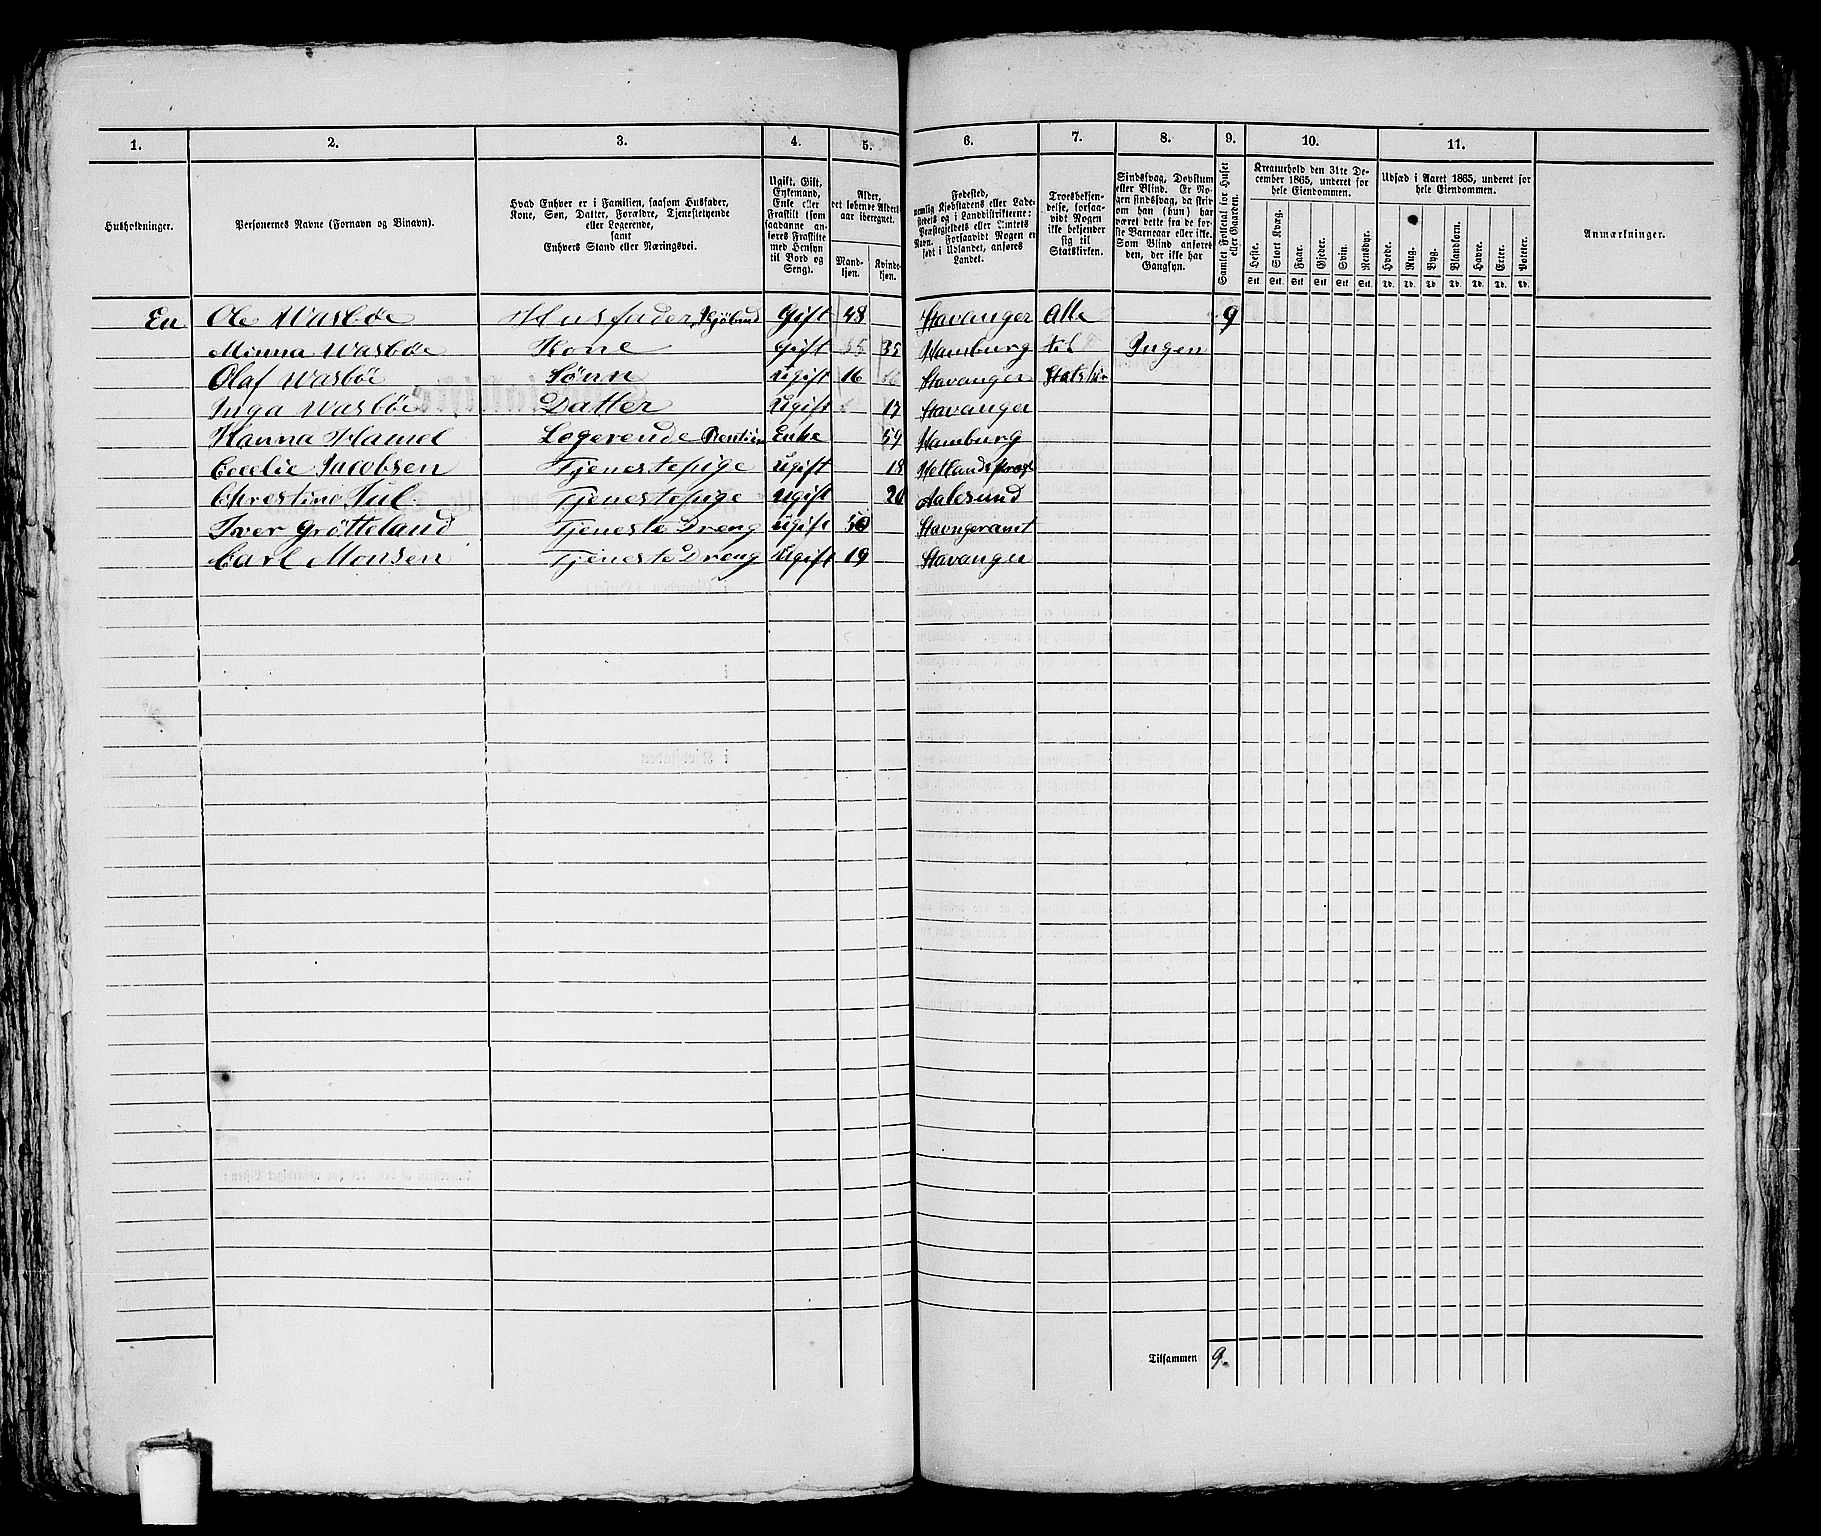 1. 2. 3. 4. 5. 6. 7. 8. 9. 10. 11.
Husholdninger.
Personernes Navne (Fornavn og Binavn).
Hvad Enhver er i Familien, saasom Husfader,
Kone, Søn, Datter, Forældre, Tjenestetyende
eller Logerende,
samt
Enhvers Stand eller Næringsvei.
Ugift, Gift,
Enkemand,
Enke eller
Fraskilt (som
saadanne an-
føres Fraskilte
med Hensyn
til Bord og
Seng).
Alder,
det løbende Alders-
aar iberegnet.
Mand-
kjøn.
Kvinde-
kjøn.
Fødested,
nemlig Kjøbstadens eller Lade-
stedets og i Landdistrikterne:
Præstegjeldets eller Sintets
Navn. Forsaavidt Nogen er
født i Udlandet, anføres
Landet.
Troesbekjen-
delse, forsaa-
vidt Nogen
ikke bekjender
sig til
Statskirken.
Sindssvag, Døvstum
eller Blind. Er No-
gen sindssvag, da skri-
ves om han (hun) har
været dette fra de før-
ste Barneaar eller ikke.
Som Blind anføres
den, der ikke har
Gangsyn.
Samlet Folketal for Huset
eller Gaarden.
Kreaturhold den 31te De-
cember 1865, underet for
hele Eiendommen.
Heste. Stort Kvæg. Faar. Gjeder. Svin. Rensdyr.
Stk. Stk. Stk. Stk. Stk. Stk.
Udsæd i Aaret 1865, underet for
hele Eiendommen.
Hvede. Rug. Byg. Blandkorn. Havre. Erter. Poteter.
Td. Td. Td. Td. Td. Td. Td.
Anmærkninger.
En Ole Wasbøe Husfader Gift 48 Stavanger Alle 9
Minna Wasbøe Kone Gift 35 Hamburg til Ingen
Olaf Wasbøe Sønn Ugift 16 Stavanger
Inga Wasbøe Datter Ugift 17 Stavanger
Hanna Hamel Logerende Enke 54 Hamburg
Cecelie Jacobsen Tjenestepige Ugift 18
Christine Jul Tjenestepige Ugift 20 Aalesund
Iver Grötteland Tjeneste Dreng Ugift 50 Stavngeramt
Carl Monsen Tjeneste Dreng Ugift 19 Stavanger
Tilsammen 9.